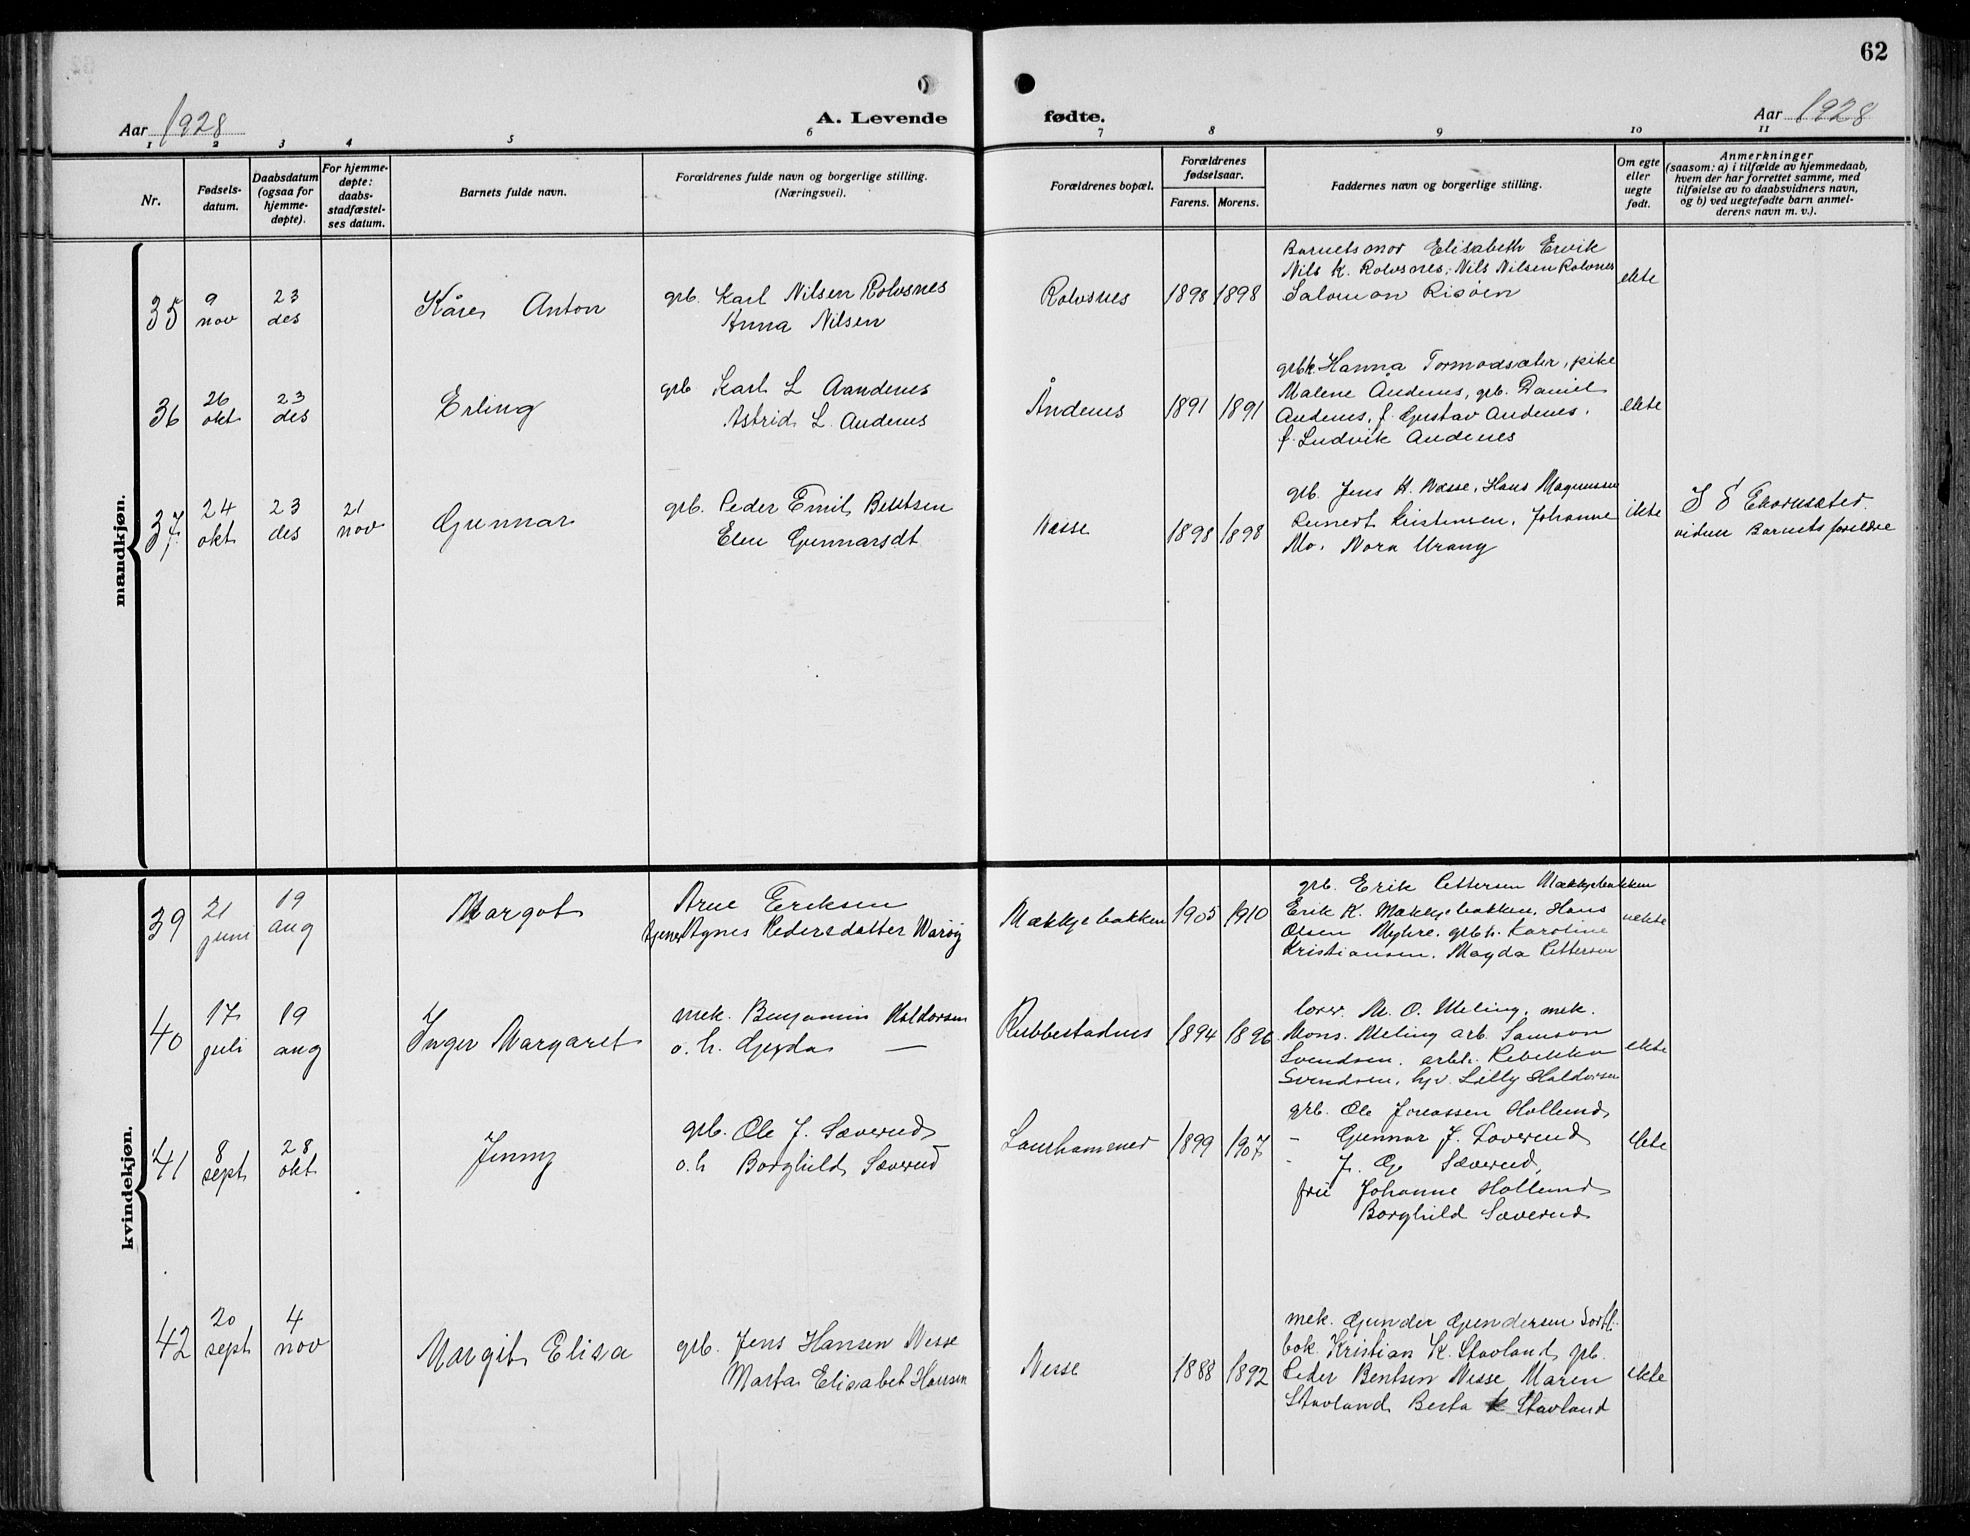 62
Aar 1928
A. Levende
fødte.
Aar 1928
1 2 3 4 5 6 7 8 9 10 11
Nr.
Fødsels-
datum.
Daabsdatum
(ogsaa for
hjemme-
døpte).
For hjemme-
døpte:
daabs-
stadfæstel-
ses datum.
Barnets fulde navn.
Forældrenes fulde navn og borgerlige stilling.
(Næringsvei).
Forældrenes bopæl.
Forældrenes
fødselsaar.
Farens. Morens.
Faddernes navn og borgerlige stilling.
Om egte
eller
uegte
født.
Anmerkninger
(saasom: a) i tilfælde av hjemmedaab,
hvem der har forrettet samme, med
tilføielse av to daabsvidners navn,
og b) ved uegtefødte barn anmel-
derens navn m. v.).
mandkjøn.
35
9
nov
23
des
Kåre Anton
grb. Karl Nilsen Rolvsnes
Anna Nilsen
Rolvsnes
1898 1898
Barnets mor Elisabeth Ervik
Nils K. Rolvsnes, Nils Nilsen Rolvsnes
Salomon Risøen
ekte
36
26
okt
23
des
Erling
grb Karl L Aandenes
Astrid L. Andenes
Åndenes
1891 1891
grbk Hanna Tormodsæter, pike
Malene Åndenes, grb. Daniel
Andenes, f. Gustav Andenes.
f. Ludvik Andenes
ekte
37
24
okt
23
des
21
nov
Gunnar
grb. Peder Emil Bentsen
Elen Gunnarsdt
Næsse
1898 1898
grb. Jens H. Næsse, Hans Magnussen
Reinert Kristensen, Johanne
Mo. Nora Urang
ekte
J S Ekornsæter.
vidner Barnets foreldre
kvindekjøn.
39
21
juni
19
aug
Margot
Arne Eriksen
Agnes Pedersdatter Warøy
Mækkjebakken
1905 1910
grb. Erik Pettersen Mækkjebakken
Erik K. Mækkjebakken, Hans
Olsen Myhre. grbh. Karoline
Kristiansen. Magda Pettersen
uekte
40
17
juli
19
aug
Inger Margaret
mek. Benjamin Haldorsen
o. h. Gerda —
Rubbestadnes
1894 1896
lærer. M. O. Meling, mek.
Mons. Meling arb. Samson
Svendsen. arbh. Rebekka
Svendsen, hjv. Lilly Haldorsen
ekte
41
8
sept
28
okt
Jenny
grb. Ole J. Sæverud
o. h Borghild Sæverud
Laurhammer
1899 1907
grb. Ole Jonassen Hollund
- Gunnar J. Sæverud
- J. G Sæverud,
frü Johanne Hollund
Borghild Sæverud
ekte
42
20
sept
4
nov
Margit Elisa
grb. Jens Hansen Nesse
Marta Elisabet Hansen
Nesse
1888 1892
mek. Gunder Gundersen
bok. Kristian K. Stavland, grb.
Peder Bentsen Nesse Maren
Stavland Berta K Stavland
ekte